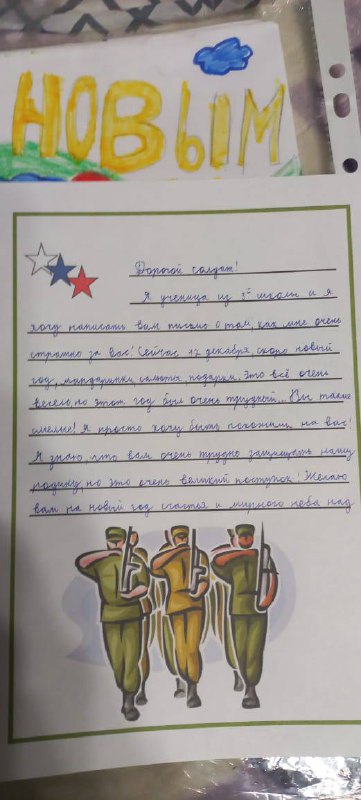 НОВЫМ
Дорогой солдат!
Я ученица из 3ей школы и я
хочу написать вам письмо о том, как мне очень
страшно за вас! Сейчас 12 декабря, скоро новый
год, мандаринки, салюты, подарки. Это всё очень
весело, но этот год был очень трудный... Вы такие
смелые! Я просто хочу быть похожим на вас!
Я знаю, что вам очень трудно защищать нашу
родину, но это очень великий поступок! Желаю
вам на новый год счастья и мирного неба над